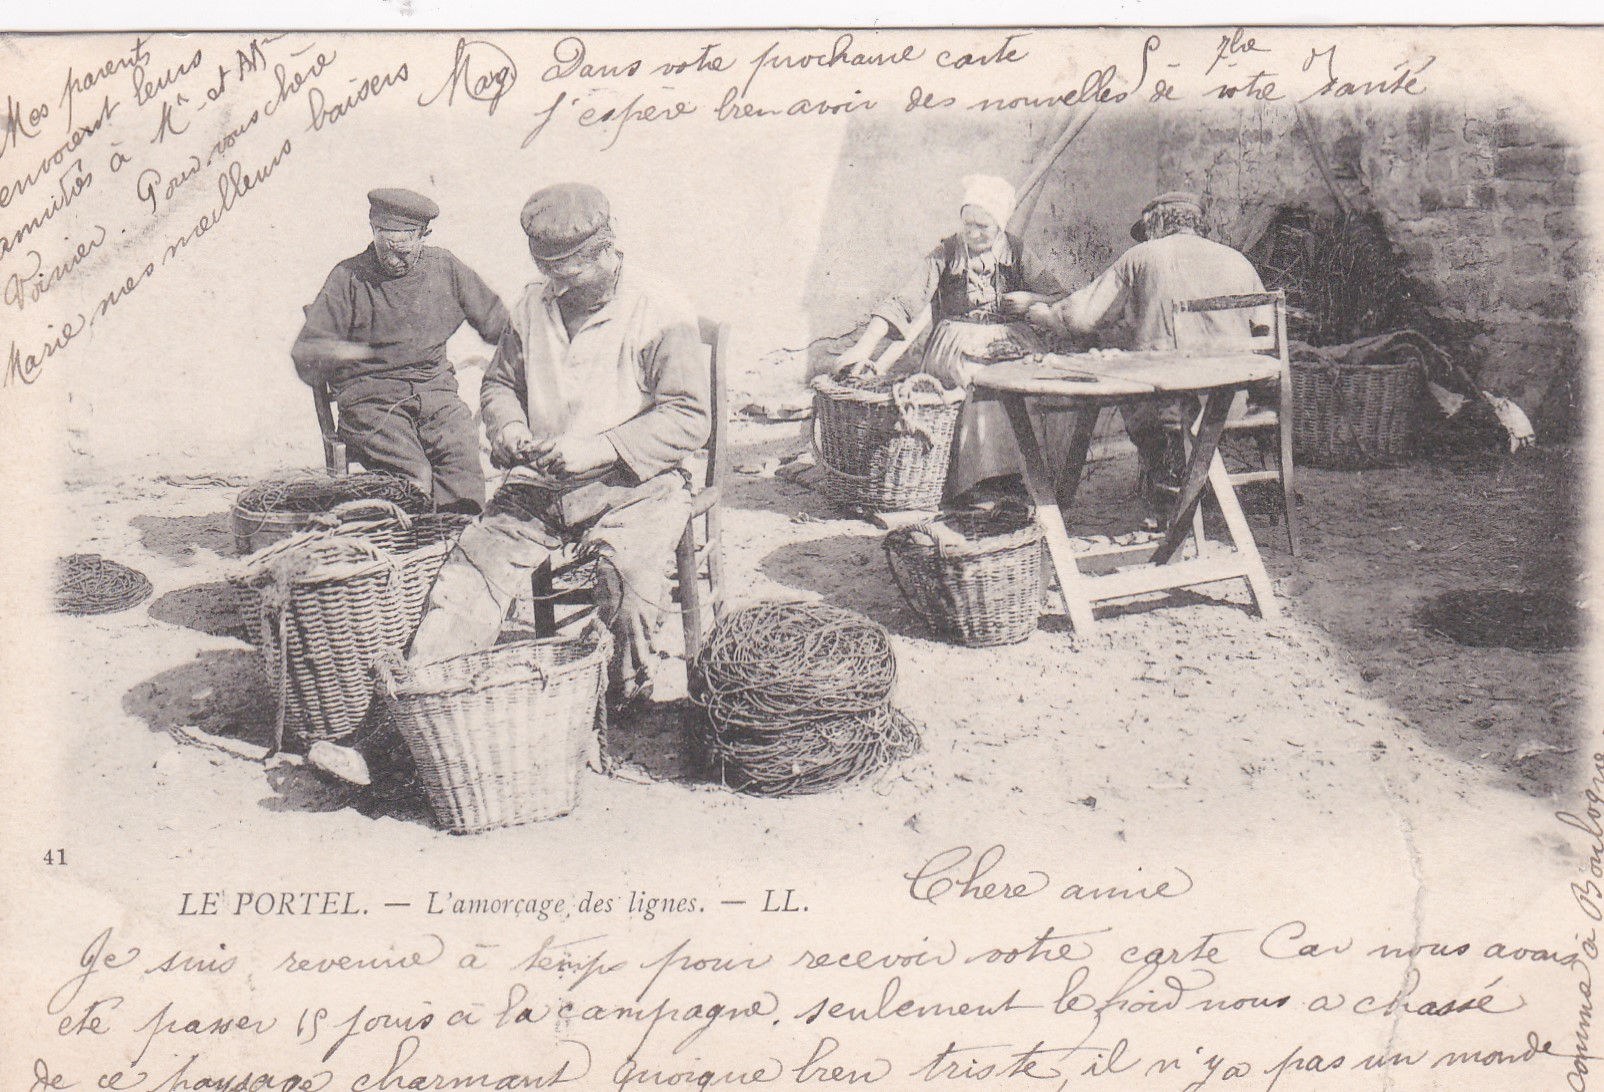 Chere amie
Je suis revenue à temps pour recevoir votre carte Car nous avons
eté passer 15 jours à la campagne. seulement le froid nous a chassé
de ce paysage charmant quoique bien triste, il n'y a pas un monde
comme à Boulogne
Dans votre prochaine carte
j'espère bien avoir des nouvelles de votre santé
Mes parents
envoient leurs
amitiés à Mr et Mme
Voirier. Pour vous chère
Marie mes meilleurs baisers Marg
41
LE PORTEL. — L'amorçage des lignes. — LL.